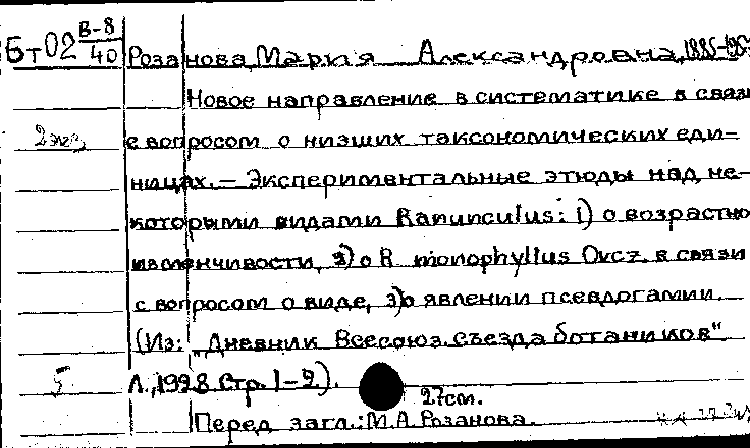 Бт02 В-8/40
Розанова, Мария Александровна, 1885-195
Новое направление в систематике в связи
2 экз.
с вопросом о низших таксономических еди-
ницах. — Экспериментальные этюды над не-
которыми видами Ranunculus: 1) о возрастно
изменчивости, 2) о R. monophyllus Ovcz. в связи
с вопросом о виде, 3) о явлении псевдогамии.
(Из: "Дневник Всесоюз. съезда ботаников"
5 Л., 1928 стр. 1-2).
27см.
Перед загл.: М.А. Розанова.